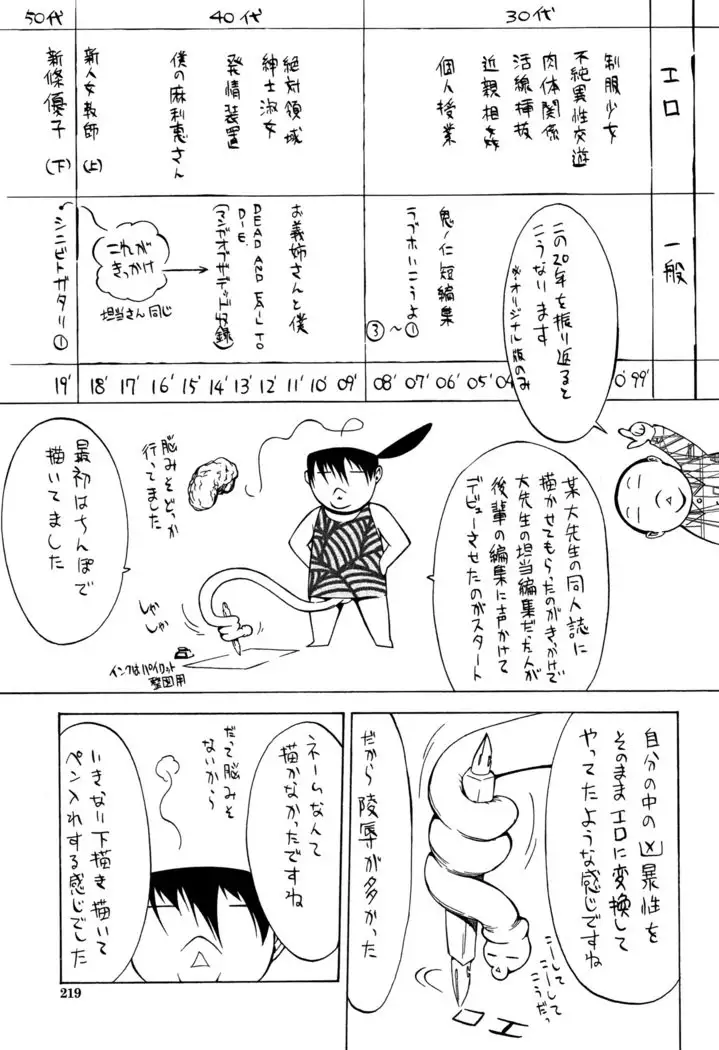 30代
40代
50代
エロ
制服少女
不純異性交遊
肉体関係
活線挿抜
近親相姦
個人授業
絶対領域
紳士淑女
発情装置
僕の麻利恵さん
新人女教師(上)
新條優子(下)
一般
鬼ノ仁短編集
ラブホいこうよ①
〜③
お義姉さんと僕
DEAD AND FAIL TO
DIE
(マンガオブザデッド収録)
これが
きっかけ
担当さん同じ
シニビトガタリ①
99'
05'
06'
07'
08'
09'
10'
11'
12'
13'
14'
15'
16'
17'
18'
19'
この20年を振り返ると
こうなります
※オリジナル版のみ
某大先生の同人誌に
描かせてもらったのがきっかけで
大先生の担当編集だった人が
後輩の編集に声かけて
デビューさせたのがスタート
脳みそどっか
行ってました
最初はちんぽで
描いてました
しゃ
しゃ
インクはパイロット
製図用
自分の中の凶暴性を
そのままエロに変換して
やってたような感じですね
だから陵辱が多かった
こーして
こーして
こうだっ
エロ
ネームなんて
描かなかったですね
だって脳みそ
ないから
いきなり下描き描いて
ペン入れする感じでした
219